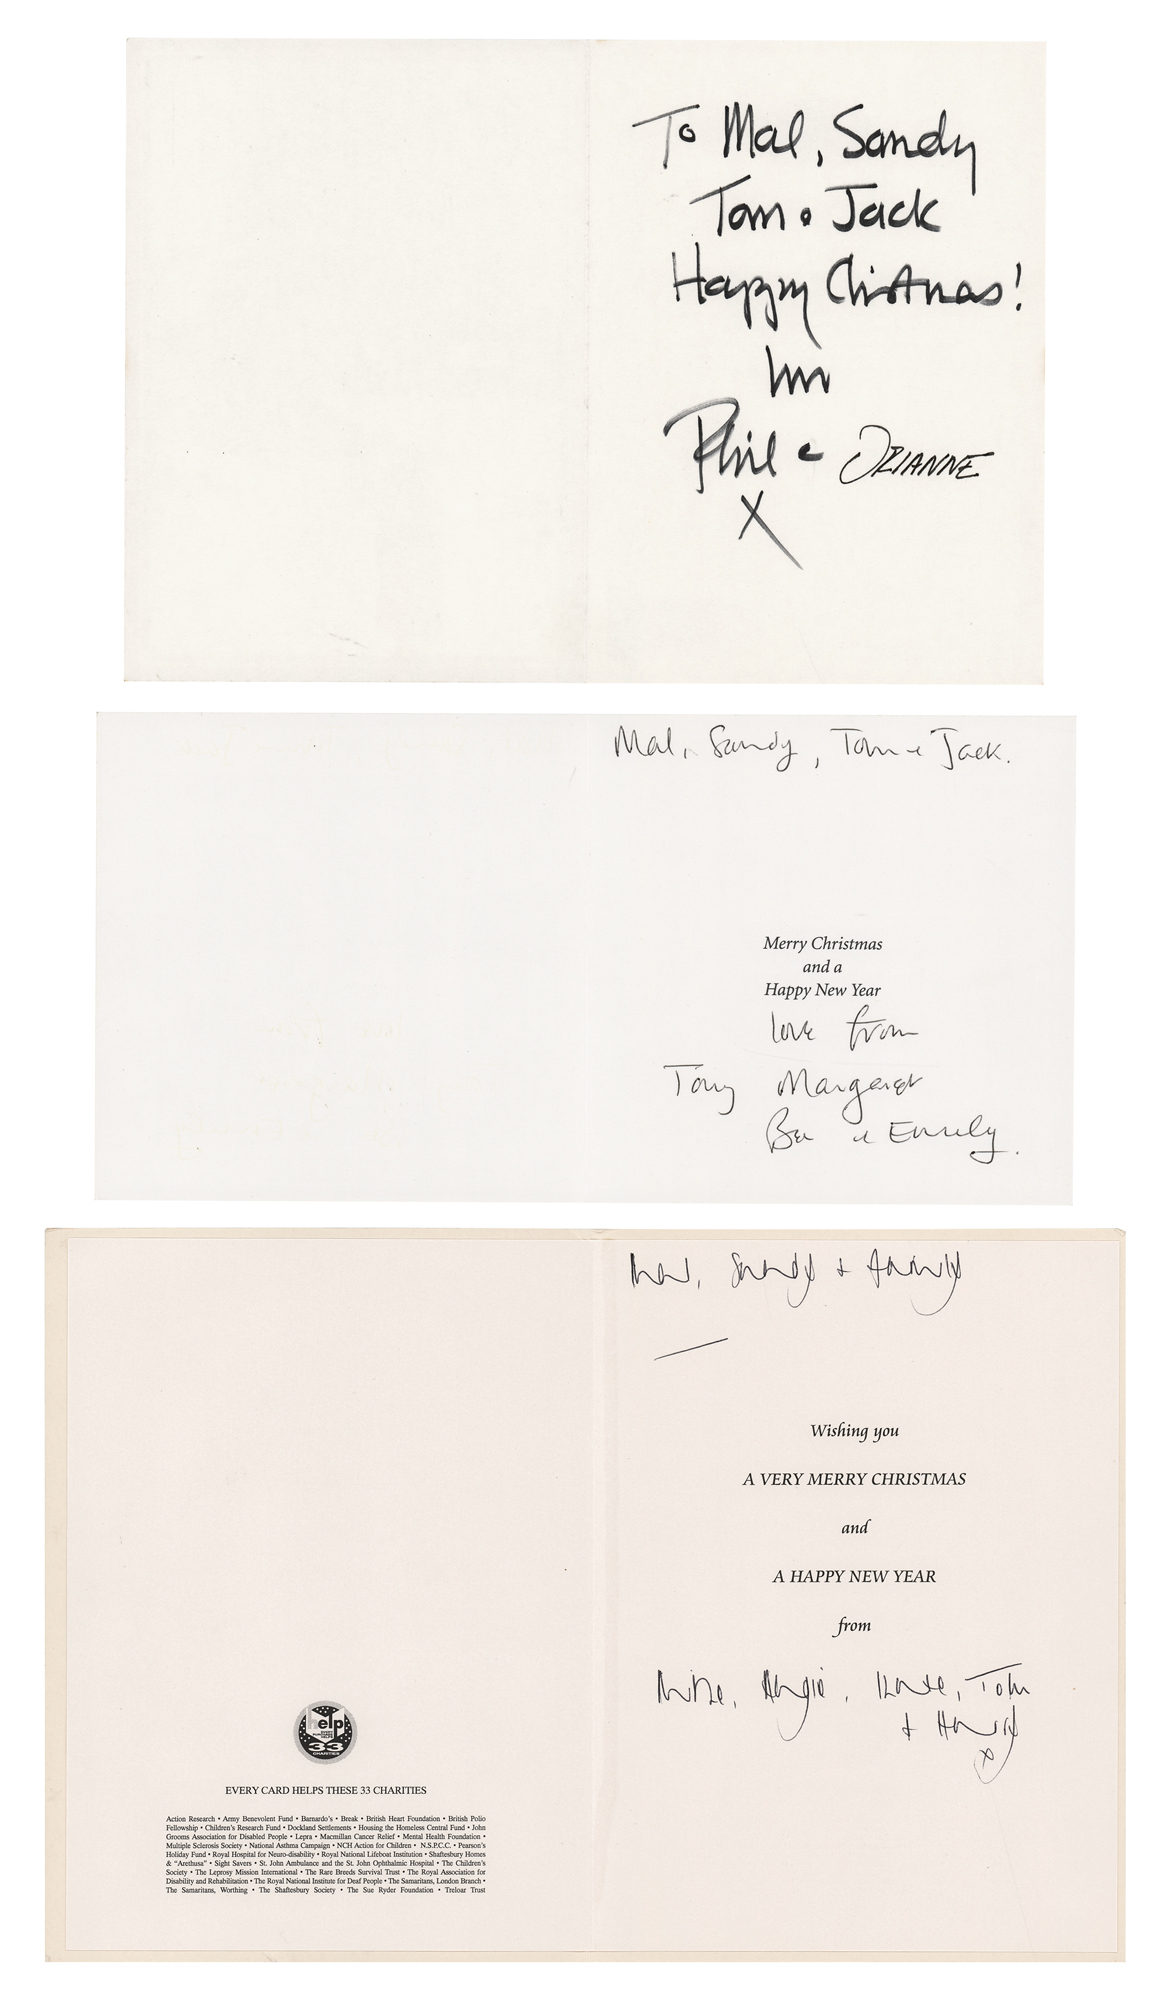 To Mal, Sandy
Tom & Jack
Happy Christmas!
luv
Phil & ORIANNE
X
Mal, Sandy, Tom & Jack.
Merry Christmas
and a
Happy New Year
love from
Tony Margaret
Ben & Emily.
Mal, Sandy & family
Wishing you
A VERY MERRY CHRISTMAS
and
A HAPPY NEW YEAR
from
Mike, Angie, Kate, Tom
& Harry
x
help
33
CHARITIES
EVERY CARD HELPS THESE 33 CHARITIES
Action Research • Army Benevolent Fund • Barnardo's • Break • British Heart Foundation • British Polio
Fellowship • Children's Research Fund • Dockland Settlements • Housing the Homeless Central Fund • John
Grooms Association for Disabled People • Lepra • Macmillan Cancer Relief • Mental Health Foundation •
Multiple Sclerosis Society • National Asthma Campaign • NCH Action for Children • N.S.P.C.C. • Pearson's
Holiday Fund • Royal Hospital for Neuro-disability • Royal National Lifeboat Institution • Shaftesbury Homes
& "Arethusa" • Sight Savers • St. John Ambulance and the St. John Ophthalmic Hospital • The Children's
Society • The Leprosy Mission International • The Rare Breeds Survival Trust • The Royal Association for
Disability and Rehabilitation • The Royal National Institute for Deaf People • The Samaritans, London Branch •
The Samaritans, Worthing • The Shaftesbury Society • The Sue Ryder Foundation • Treloar Trust